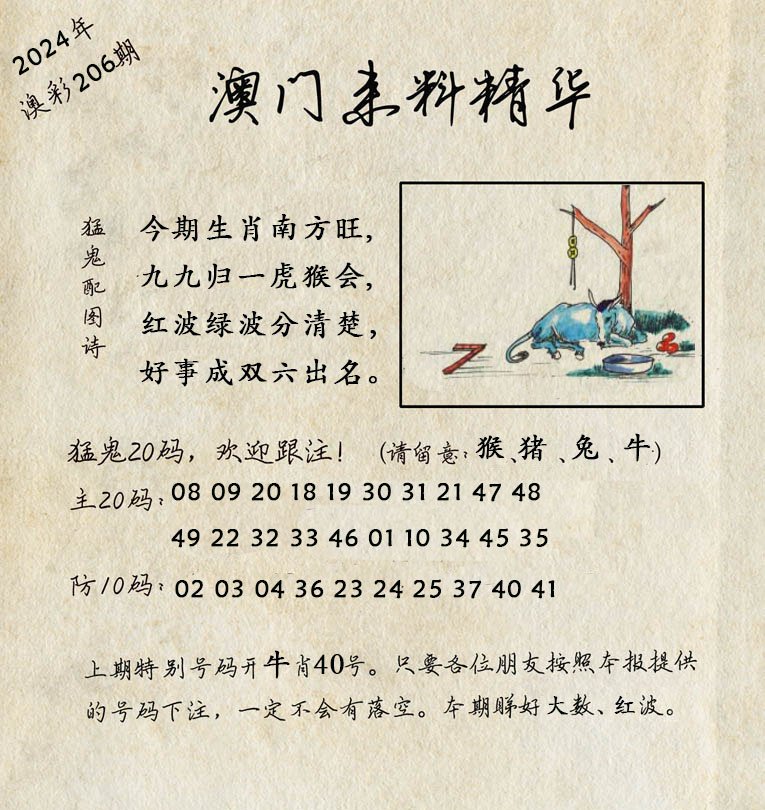 2024年
澳彩206期
澳门来料精华
猛鬼配图诗
今期生肖南方旺，
九九归一虎猴会，
红波绿波分清楚，
好事成双六出名。
猛鬼20码，欢迎跟注！（请留意：猴、猪、兔、牛）
主20码：08 09 20 18 19 30 31 21 47 48
49 22 32 33 46 01 10 34 45 35
防10码：02 03 04 36 23 24 25 37 40 41
上期特别号码开牛肖40号。只要各位朋友按照本报提供
的号码下注，一定不会有落空。本期睇好大数、红波。